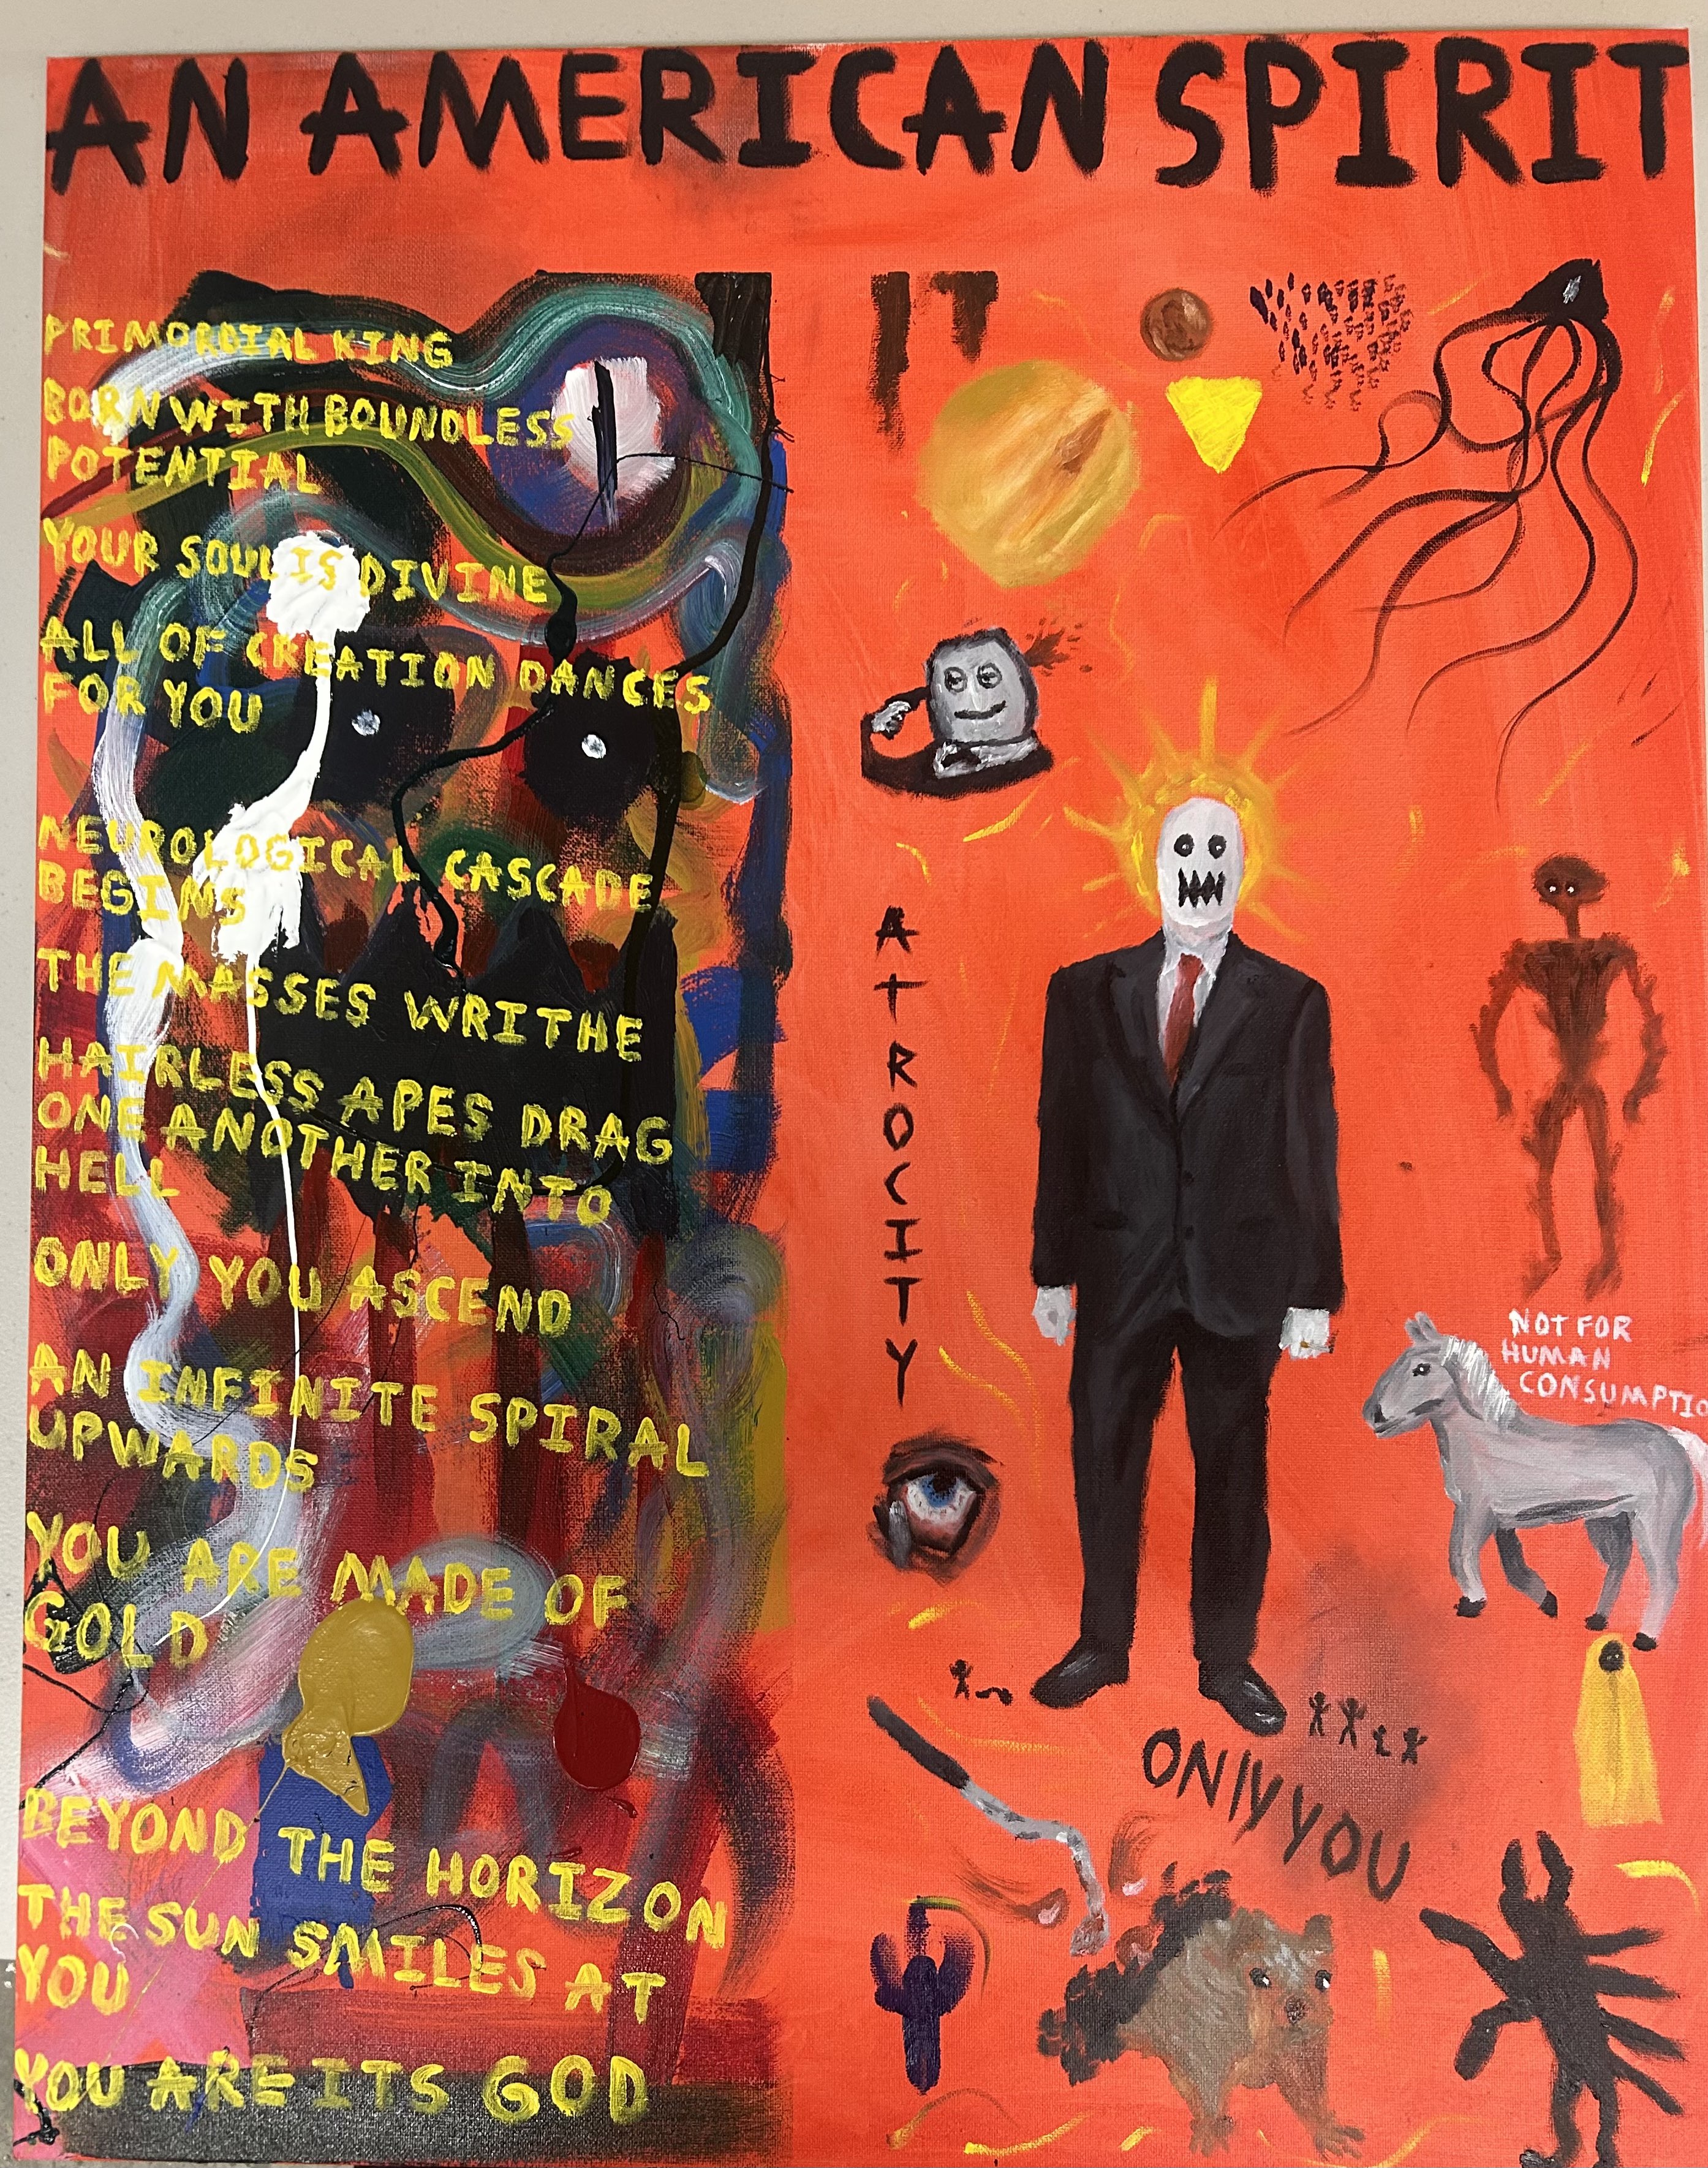 AN AMERICAN SPIRIT
PRIMORDIAL KING
BORN WITH BOUNDLESS
POTENTIAL
YOUR SOUL IS DIVINE
ALL OF CREATION DANCES
FOR YOU
NEUROLOGICAL CASCADE
BEGINS
THE MASSES WRITHE
HAIRLESS APES DRAG
ONE ANOTHER INTO
HELL
ONLY YOU ASCEND
AN INFINITE SPIRAL
UPWARDS
YOU ARE MADE OF
GOLD
BEYOND THE HORIZON
THE SUN SMILES AT
YOU
YOU ARE ITS GOD
ATROCITY
NOT FOR
HUMAN
CONSUMPTIO
ONLY YOU